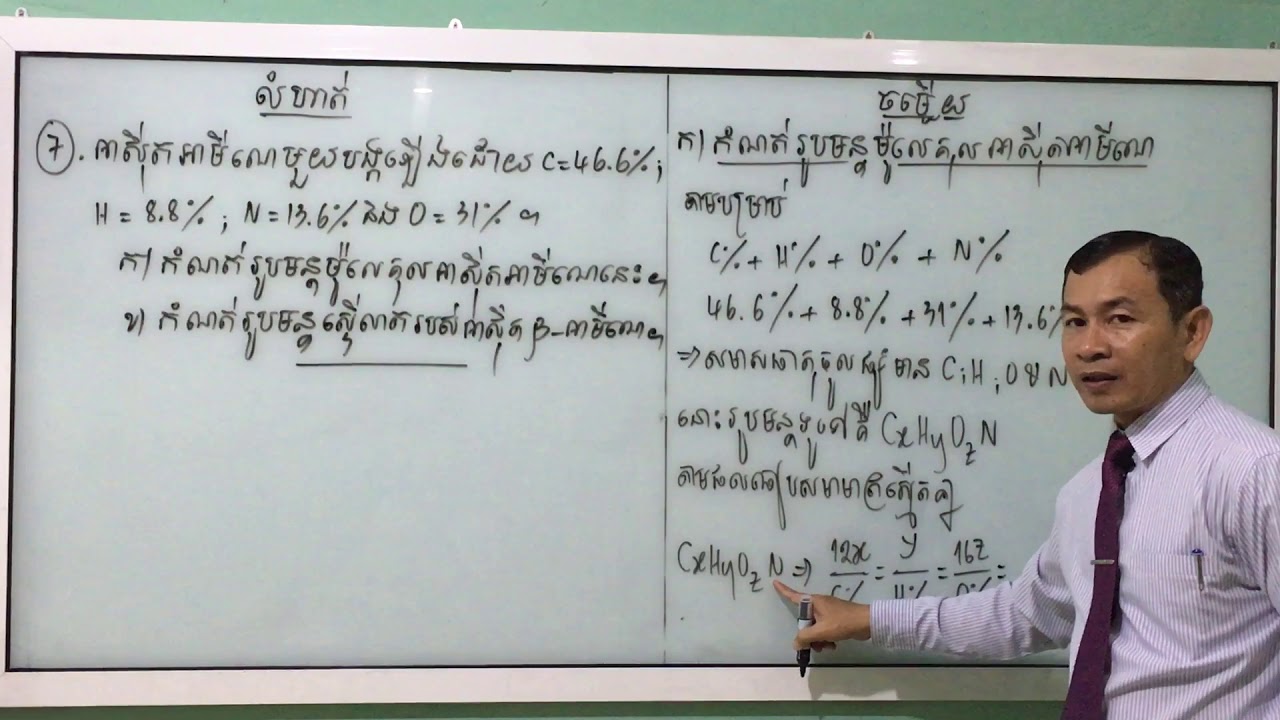 លំហាត់
7. អាស៊ីតអាមីណេមួយបង្កឡើងដោយ C=46.6% ;
H = 8.8% ; N = 13.6% និង O = 31% ។
ក) កំណត់រូបមន្តម៉ូលេគុលអាស៊ីតអាមីណេនេះ។
ខ) កំណត់រូបមន្តស្ទើលាតរបស់អាស៊ីត β-អាមីណេ។
ចម្លើយ
ក) កំណត់រូបមន្តម៉ូលេគុលអាស៊ីតអាមីណេ
តាមបម្រាប់
C% + H% + O% + N%
46.6% + 8.8% + 31% + 13.6%
⇒ សមាសធាតុចូលផ្សំមាន C ; H ; O ឬ N
នោះរូបមន្តទូទៅគឺ CxHyOzN
តាមផលធៀបសមាមាត្រស្មើគ្នា
CxHyOzN ⇒ 12x/C% = y/H% = 16z/O% =